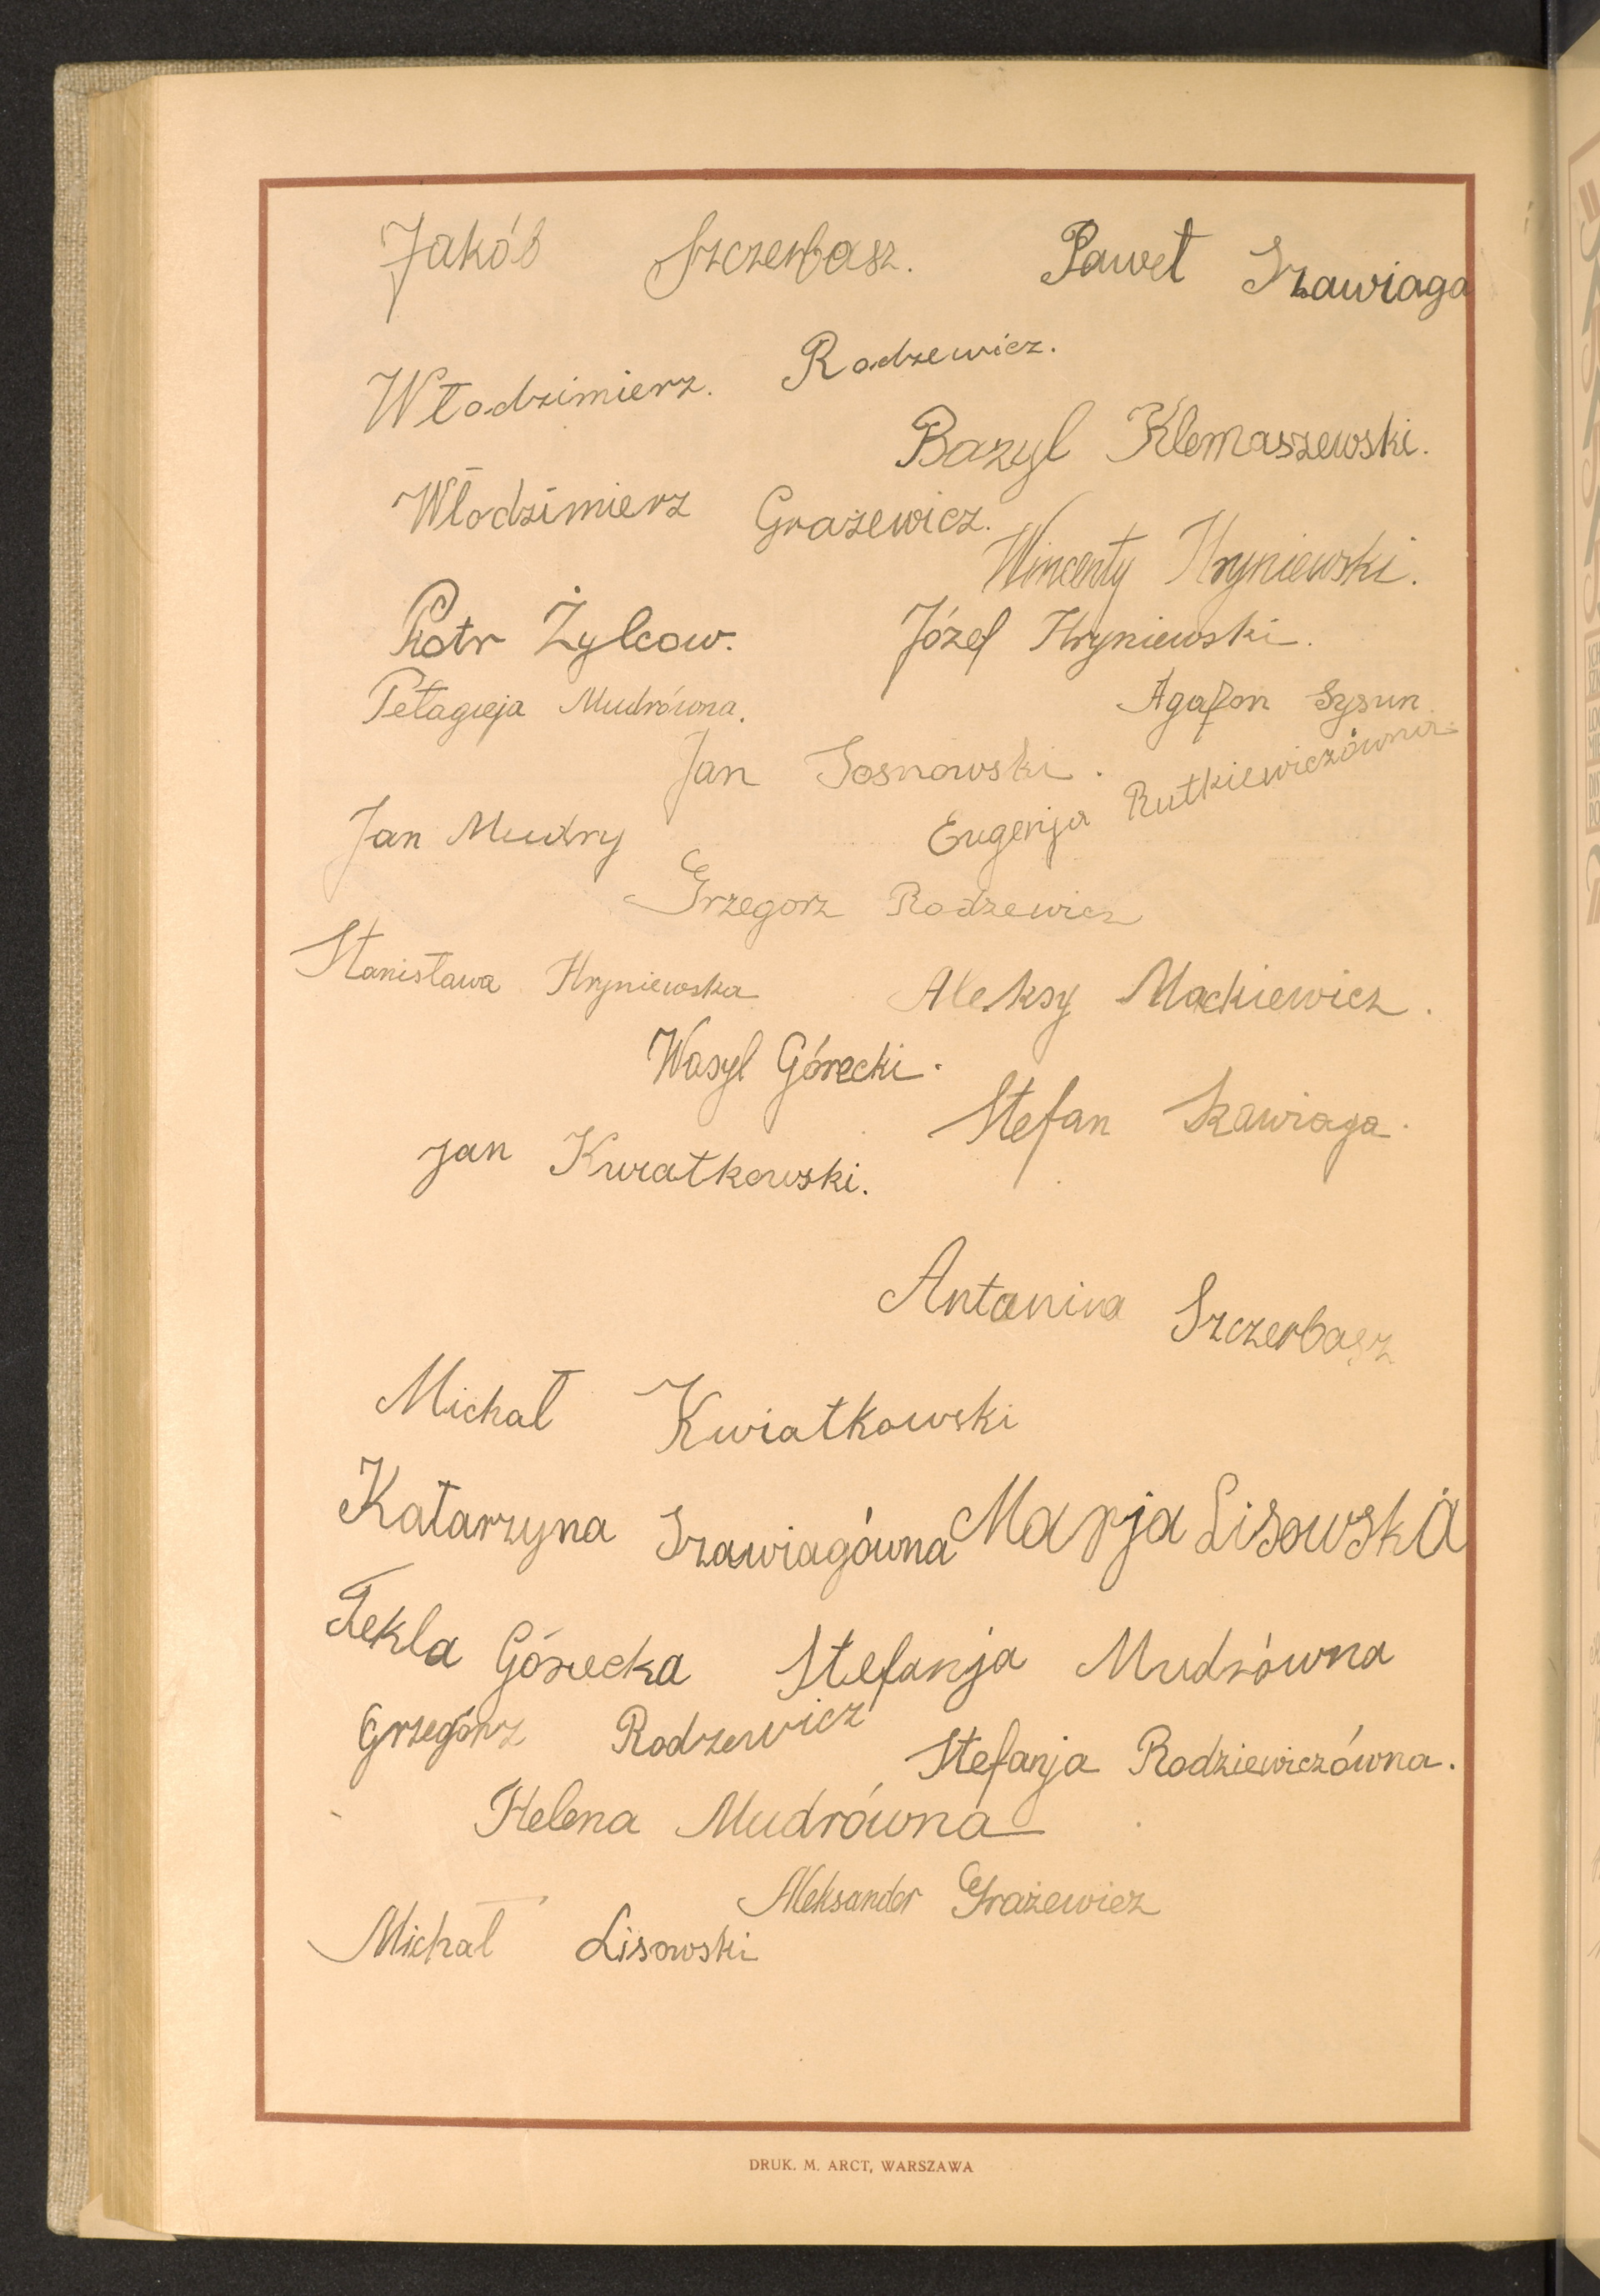 Jakób Szczerbasz. Paweł Szawiaga
Włodzimierz. Rodzewicz.
Bazyl Klemaszewski.
Włodzimierz Grażewicz.
Wincenty Hryniewski.
Piotr Żylcow. Józef Hryniewski.
Pełagieja Mudrówna. Agafon Sysun.
Jan Sosnowski. Eugenja Rutkiewiczówna.
Jan Mudry
Grzegorz Rodzewicz
Stanisława Hryniewska Aleksy Mackiewicz.
Wasyl Górecki.
Stefan Szawiaga.
Jan Kwiatkowski.
Antonina Szczerbasz
Michał Kwiatkowski
Katarzyna Szawiagówna Marja Lisowska
Tekla Górecka Stefanja Mudrówna
Grzegórz Rodzewicz Stefanja Rodziewiczówna.
Helena Mudrówna
Aleksander Grażewicz
Michał Lisowski
DRUK. M. ARCT, WARSZAWA